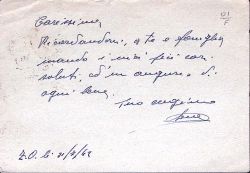 Carissima
Ricordandoti, a te e famiglia
mando i miei più cari
saluti, ed un augurio di
ogni bene.
tuo cugino
Z.O. li 21/7/62